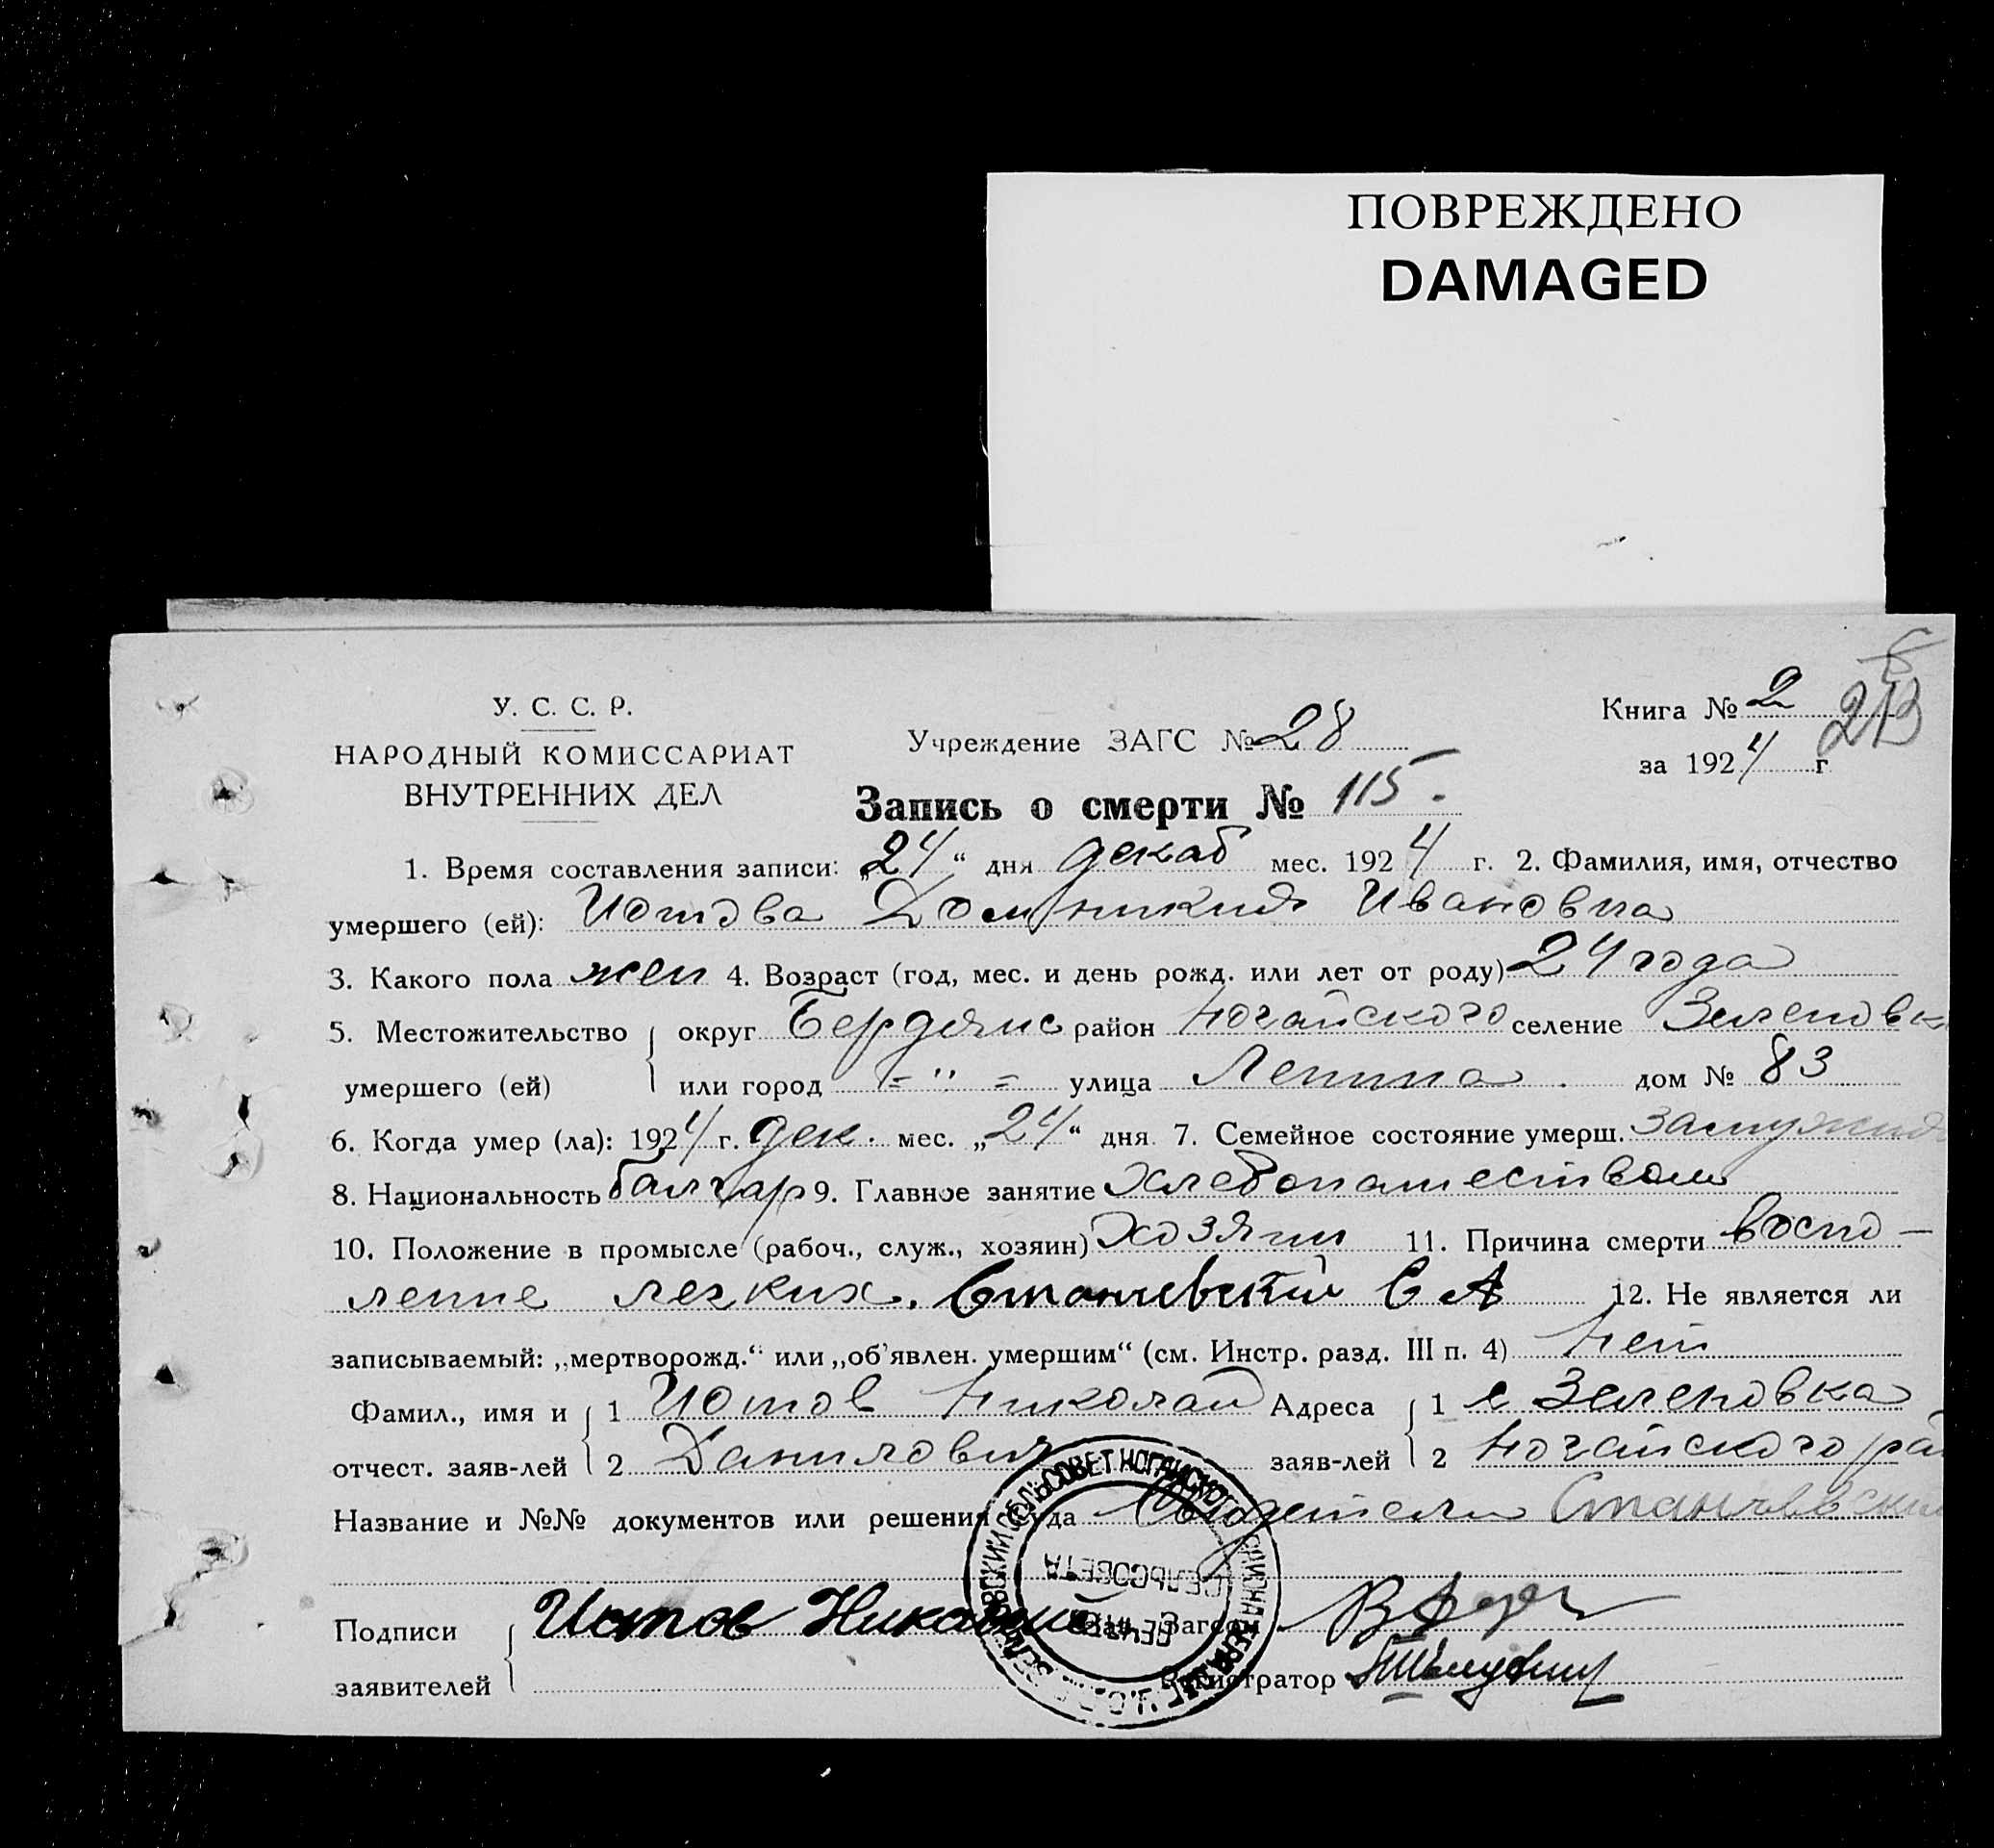 ПОВРЕЖДЕНО
DAMAGED
У. С. С. Р.
НАРОДНЫЙ КОМИССАРИАТ
ВНУТРЕННИХ ДЕЛ
Учреждение ЗАГС № 28
Книга № 2 213
за 1924 г
Запись о смерти № 115.
1. Время составления записи: „24“ дня декаб мес. 1924 г. 2. Фамилия, имя, отчество
умершего (ей): Иотова Домникия Ивановна
3. Какого пола жен 4. Возраст (год, мес. и день рожд. или лет от роду) 24 года
5. Местожительство округ Бердянс район Ногайского селение Зеленовк
умершего (ей) или город - " = улица Ленина . дом № 83
6. Когда умер (ла): 1924 г. дек. мес. „24“ дня 7. Семейное состояние умерш. замужняя
8. Национальность болгар 9. Главное занятие хлебопашеством
10. Положение в промысле (рабоч., служ., хозяин) хозяин 11. Причина смерти воспо-
ление легких. Станчевский С А 12. Не является ли
записываемый: „мертворожд.“ или „об'явлен. умершим“ (см. Инстр. разд. III п. 4) нет
Фамил., имя и 1 Иотов Николай Адреса 1 с Зеленовка
отчест. заяв-лей 2 Данилович заяв-лей 2 Ногайского рай
Название и №№ документов или решения Суда Свидетели Станчевский
СЕЛЬСОВЕТ НОГАЙСКОГО РАЙОНА
СЕЛЬСОВЕТА
Подписи Иотов Николай Зав. Загсом
заявителей Регистратор